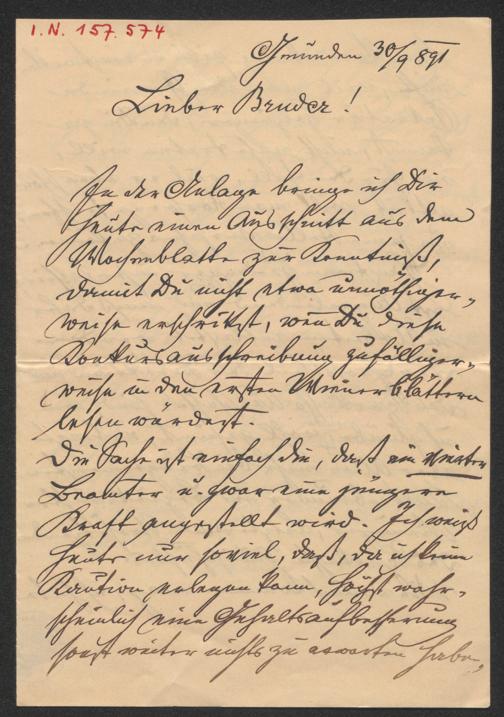 I.N. 157.574
Gmunden 30/9 891
Lieber Bruder!
In der Anlage bringe ich Dir
heute einen Ausschnitt aus dem
Wochenblatte zur Kenntniß,
damit Du nicht etwa unnöthiger-
weise erschrikst, wen̄ Du diese
Konkursausschreibung zufälliger-
weise in den ersten Wienerblättern
lesen würdest.
Die Sache ist einfach die, daß ein vierter
Beamter u. zwar eine jüngere
Kraft angestellt wird. Ich weiß
heute nur soviel, daß, da ich keine
Kaution erlegen kann, höchst wahr-
scheinlich eine Gehaltsaufbesserung
sonst weiter nichts zu erwarten habe,